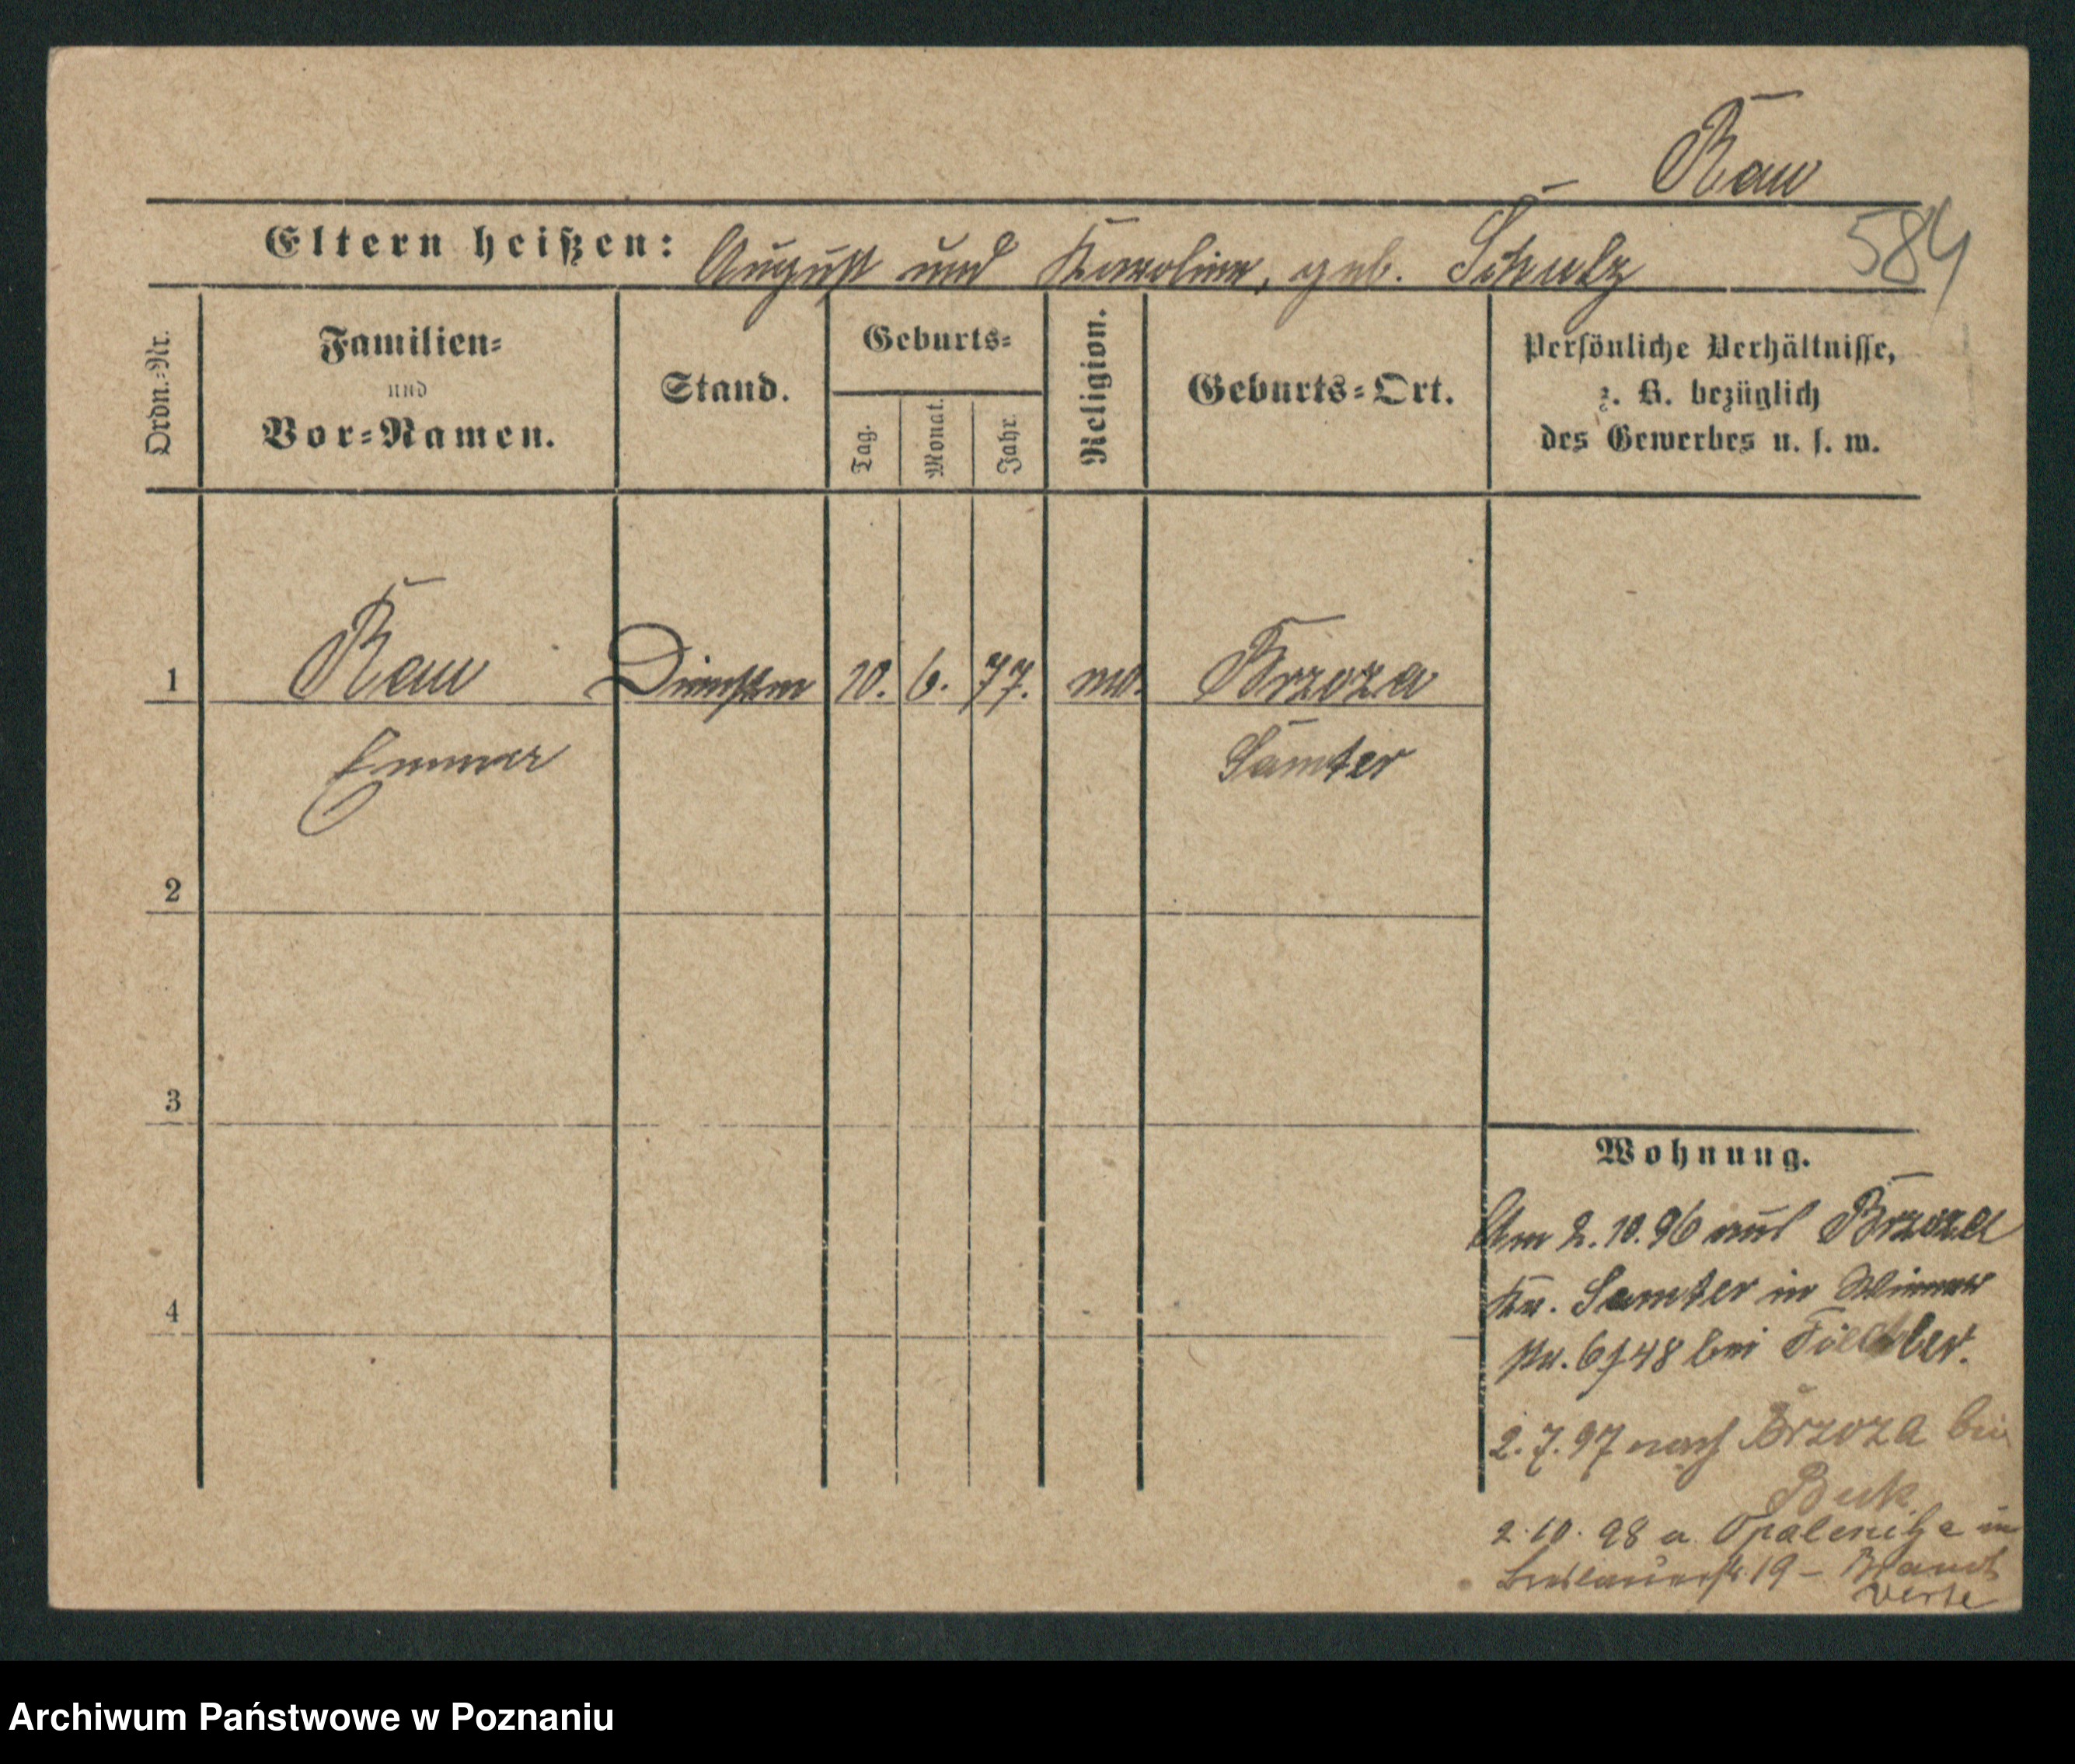 Rau
584
Eltern heißen: August und Karoline, geb. Schulz
Ordn.=Nr.
Familien=
und
Vor=Namen.
Stand.
Geburts=
Tag.
Monat.
Jahr.
Religion.
Geburts=Ort.
Persönliche Verhältnisse,
z. B. bezüglich
des Gewerbes u. s. w.
1 Rau Dienstm 10. 6. 77. ev. Brzoza
Emma Samter
2
3
4
Wohnung.
Am 2.10.96 aus Brzoza
Kr. Samter in
Nr. 6/48 bei
2.7.97 nach Brzoza bei
2.10.98 a Opalenitza in
Breslauerstr. 19 –
verte
Archiwum Państwowe w Poznaniu